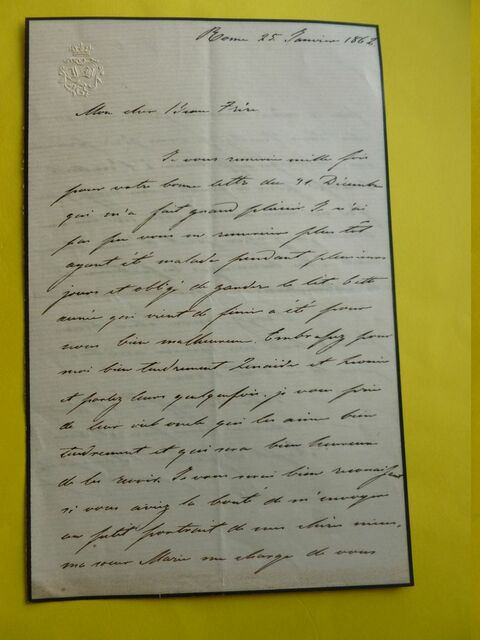 Rome 25 Janvier 1862
Mon cher Beau Frère
Je vous remercie mille fois
pour votre bonne lettre du 31 Décembre
qui m'a fait grand plaisir. Je n'ai
pas pu vous en remercier plus tôt
ayant été malade pendant plusieurs
jours et obligé de garder le lit. Cette
année qui vient de finir a été pour
nous bien malheureuse. Embrassez pour
moi bien tendrement Zénaïde et
et parlez leurs quelquefois, je vous prie
de leur oncle qui les aime bien
tendrement et qui sera bien heureux
de les revoir. Je vous serai bien reconnaissant
si vous aviez la bonté de m'envoyer
un petit portrait de mes chères nièces,
ma sœur Marie me charge de vous